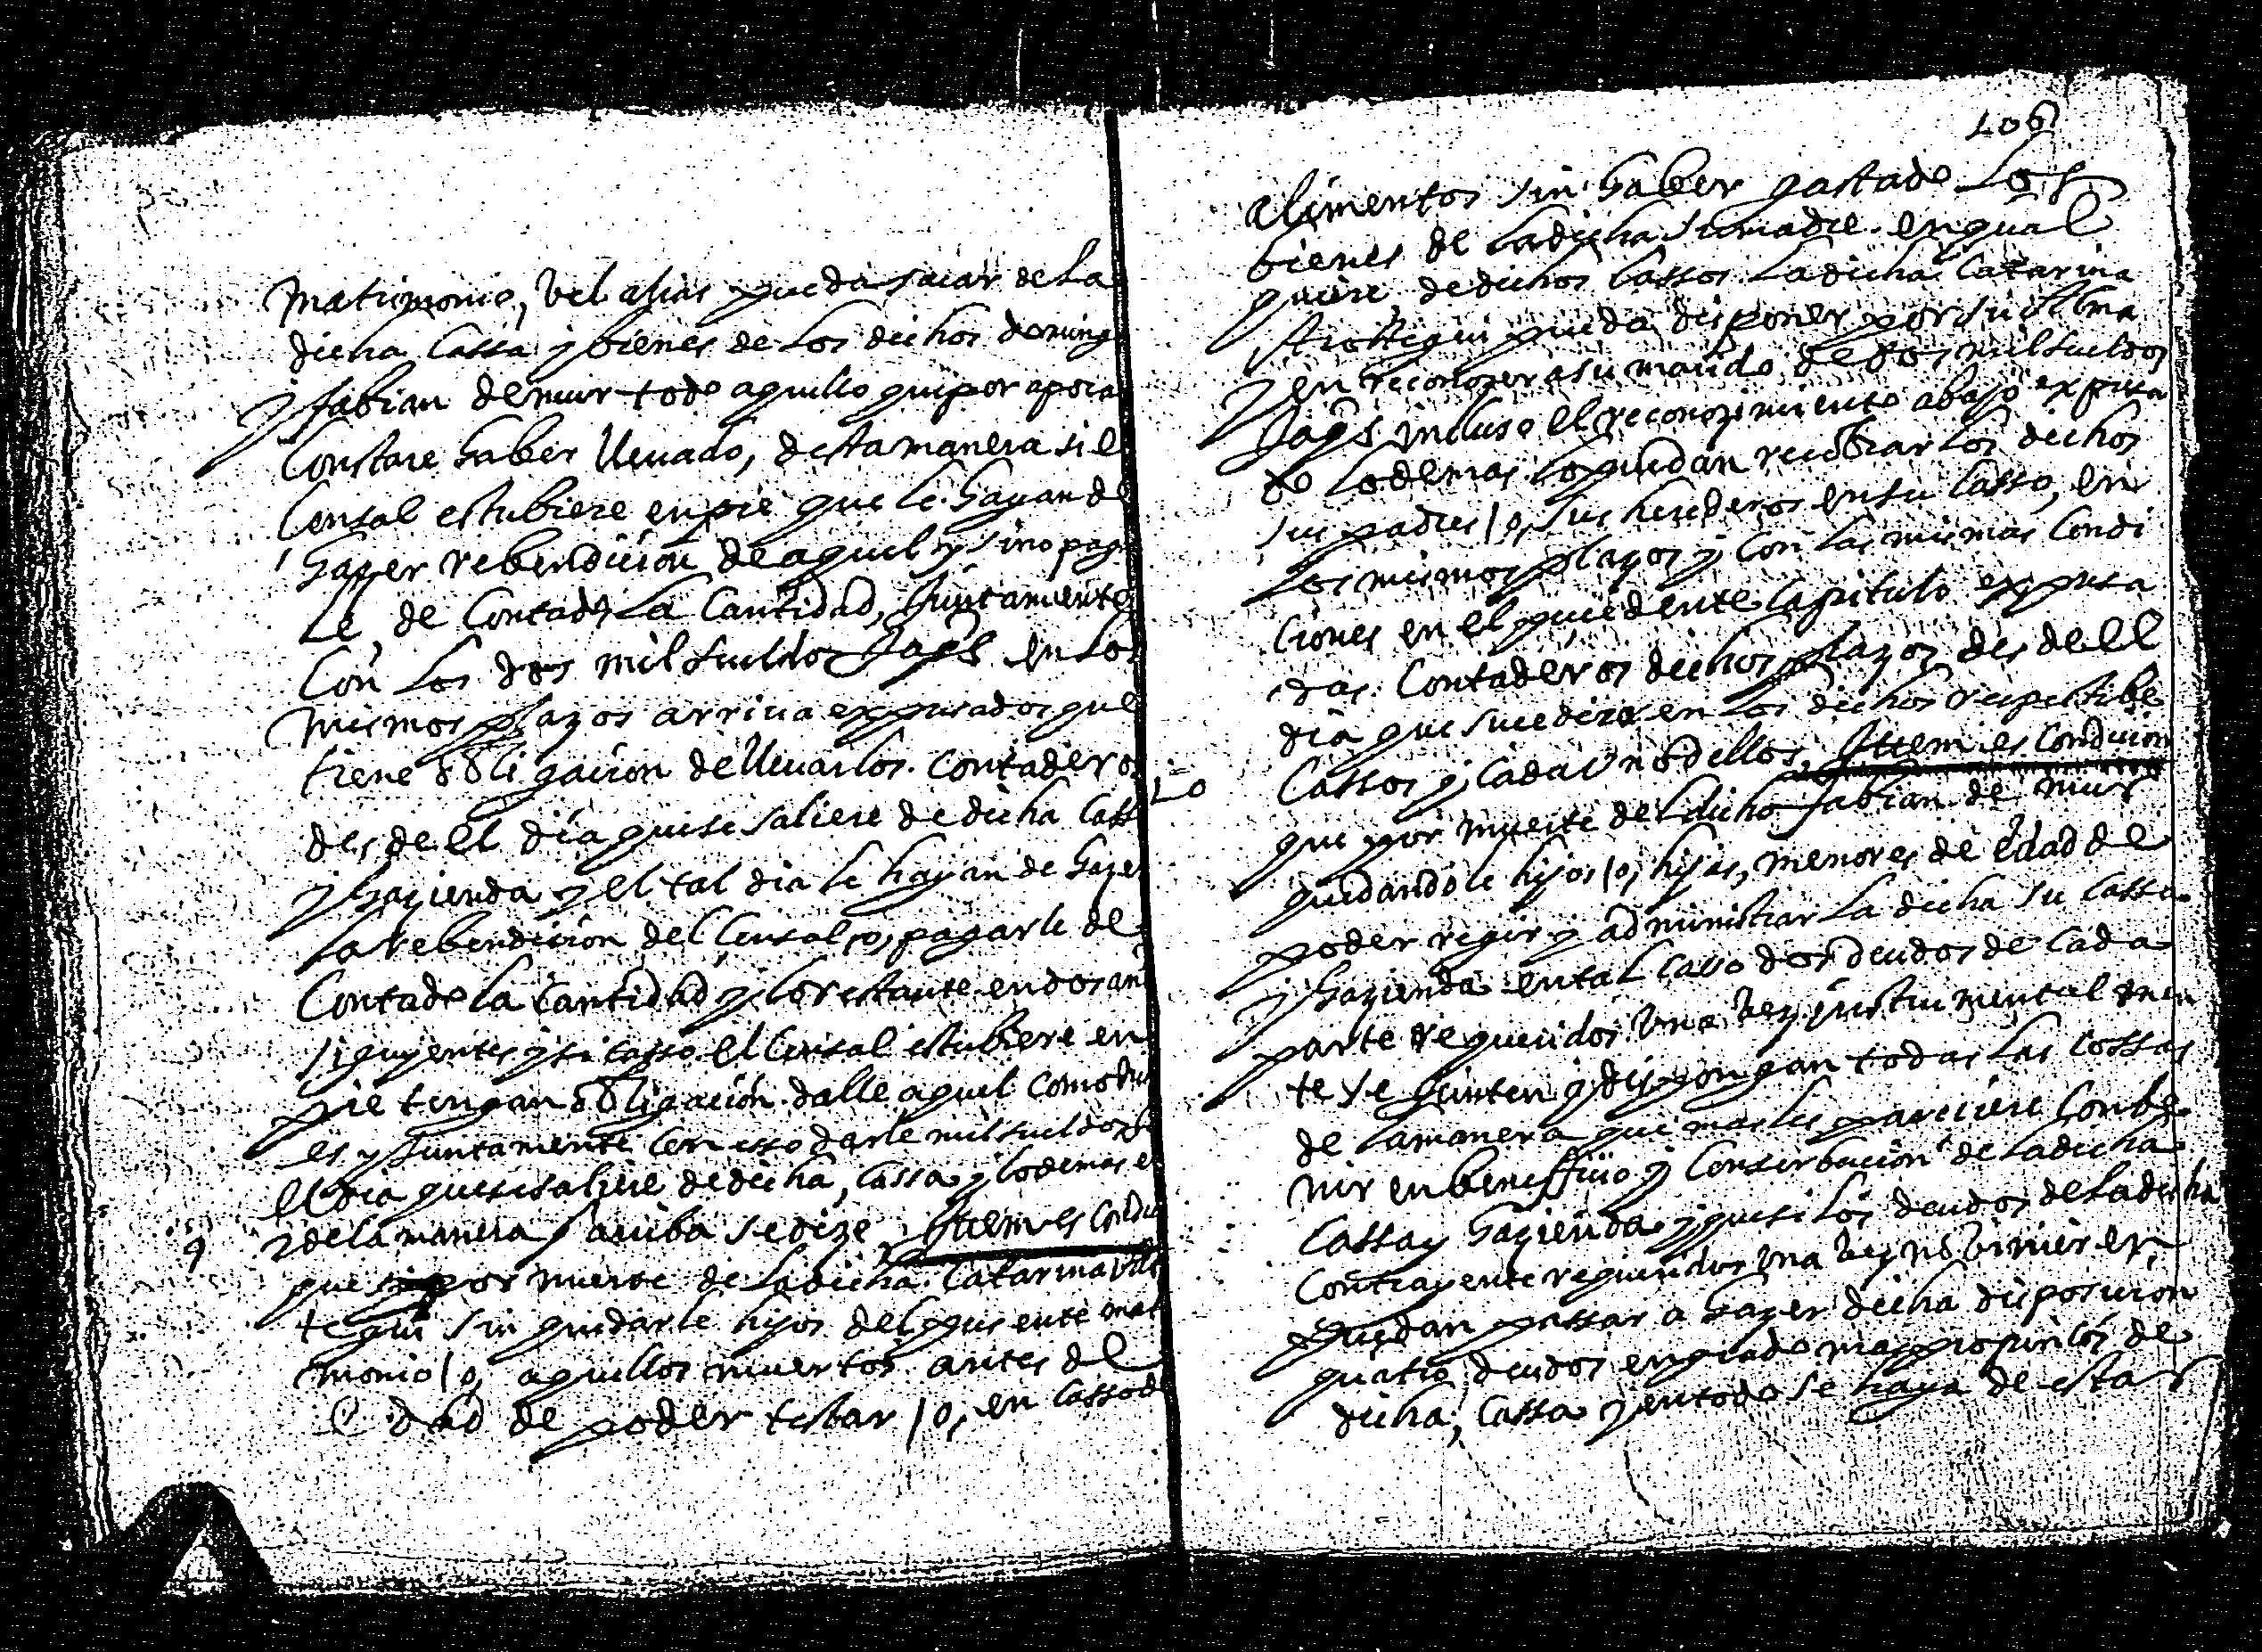 matrimonio, vel alias pueda sacar de la
dicha Cassa y bienes de los dichos doming
y fabian de mur todo aquello que por apoca
Constare haber lleuado, desta manera si el
Censal estubiere en pie que le hayan de
hazer rebendicion de aquel y sino pag
le de Contado la Cantidad, Juntamente
Con los dos mil sueldos Jaqs en los
mismos plazos arriua expresados que
tiene obligacion de lleuarlos. Contaderos
desde el dia que se saliere de dicha Cass
y hazienda y el tal dia le hayan de hazer
la rebendicion del Censal, o, pagarle de
Contado la Cantidad y lo restante en dos añ
siguyentes y si casso el Censal estubiere en
pie tengan obligacion dalle aquel como
es y Juntamente con esso darle mil sueldos
el dia que se saliere de dicha Cassa y lo demas el
de la manera arriba se dize Ittem es Condic
9
que por muerte de la dicha Catarina
tegui sin quedarle hijos del presente mat
monio /o, aquellos muertos antes de
Edad de poder testar /o, en Casso de
106
alimentos sin haber gastado los
bienes de la dicha su madre en qual
quiere de dichos Cassos la dicha Catarina
pueda disponer por su Alma
y en reconozer a su marido de dos mil sueldos
Jaqs incluso el reconozimiento abajo expresa
do lo demas lo puedan recobrar los dichos
sus padres /o, sus herederos en su Casso, en
los mismos plazos y con las mismas Condi
ciones en el precedente Capitulo expresa
das. Contaderos dichos plazos desde el
dia que sucediere en los dichos respectibe
Cassos y Cada Uno dellos. Ittem es Condicion
10
que por muerte del dicho fabian de mur
quedandole hijos /o, hijas, menores de edad de
poder regir y administrar la dicha su Cassa
y hazienda en tal Casso dos deudos de Cada
parte requeridos Una bez instrumentalmen
te se Junten y dispongan todas las Cossas
de la manera que mas les pareciere Conbe
nir en beneffiçio y Conserbacion de la dicha
Cassa y hazienda y que si los deudos de la dicha
Contrayente requeridos Una bez no binieren,
puedan passar a hazer dicha disposicion
quatro deudos en grado mas propincos de
dicha, Cassa y en todo se haya de estar